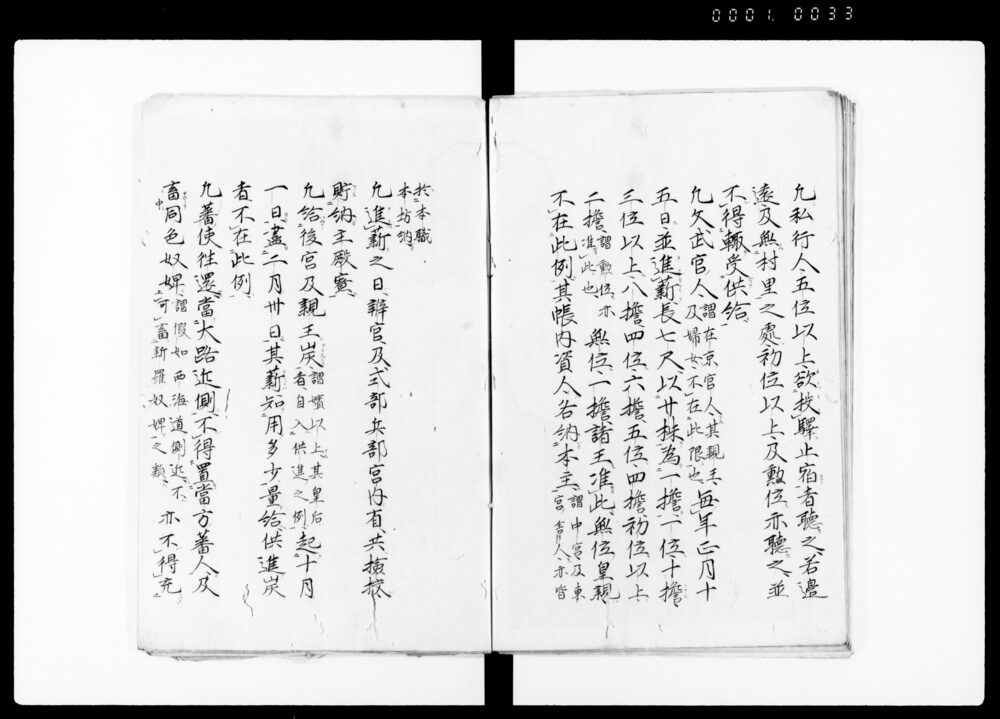 0001 0033
凡私行人五位以上欲投驛止宿者聽之若邊
遠及無村里之處初位以上及勲位亦聽之並
不得輙受供給
凡文武官人謂在京官人其親王及婦女不在此限也毎年正月十
五日並進薪長七尺以廿株為一擔一位十擔
三位以上八擔四位六擔五位四擔初位以上
二擔謂勲位亦准此也無位一擔諸王准此無位皇親
不在此例其帳内資人各納本主謂中宮及東宮舎人亦皆
於本職
本坊納
凡進薪之日辨官及式部兵部宮内省共撿挍
貯納主殿寮
凡給後宮及親王炭謂嬪以上其皇后者自入供進之例起十月
一日盡二月卅日其薪知用多少量給供進炭
者不在此例
凡蕃使往還當大路近側不得置當方蕃人及
畜同色奴婢謂假如西海道側近不可畜新羅奴婢之類亦不得充
中